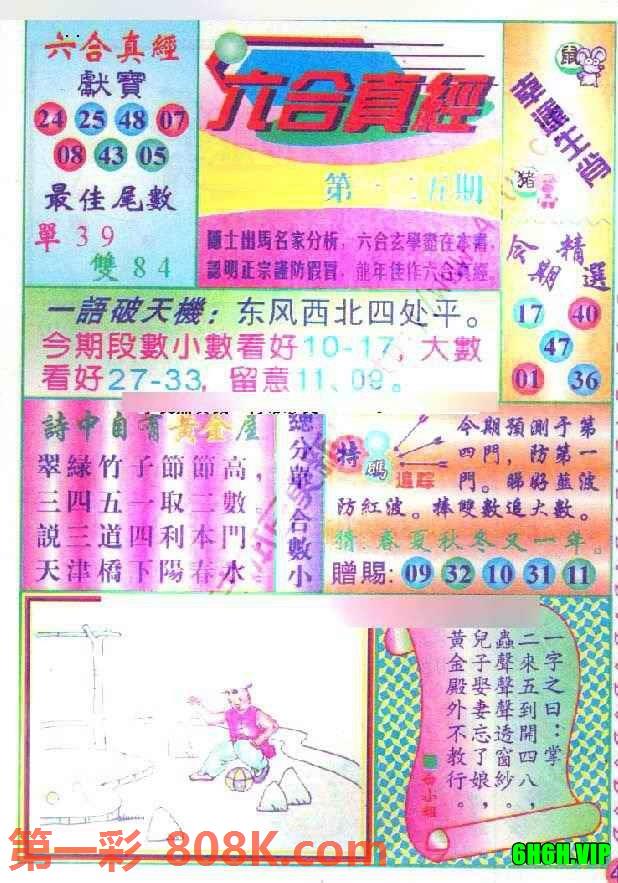 六合真經
獻寶
24 25 48 07
08 43 05
最佳尾數
單39
雙84
六合真經
第一二五期
隱士出馬名家分析，六合玄學盡在本書，
認明正宗謹防假冒，龍年佳作六合真經。
鼠
幸運生肖
豬
今期精選
17 40
47
01 36
一語破天機：东风西北四处平。
今期段數小數看好10-17，大數
看好27-33，留意11、09。
詩中自有黃金屋
翠綠竹子節節高，
三四五一取二數。
説三道四利本門，
天津橋下陽春水
總分單合數小
特碼
追踪
今期預測于第
四門，防第一
門。睇好藍波
防紅波。捧雙數追大數。
猜：春夏秋冬又一年。
贈賜：09 32 10 31 11
一字之曰：掌
二來五到開四八，
蟲聲聲聲透窗紗。
兒子娶妻忘了娘，
黃金殿外不教行。
第一彩 808K.com
6H6H.VIP
4